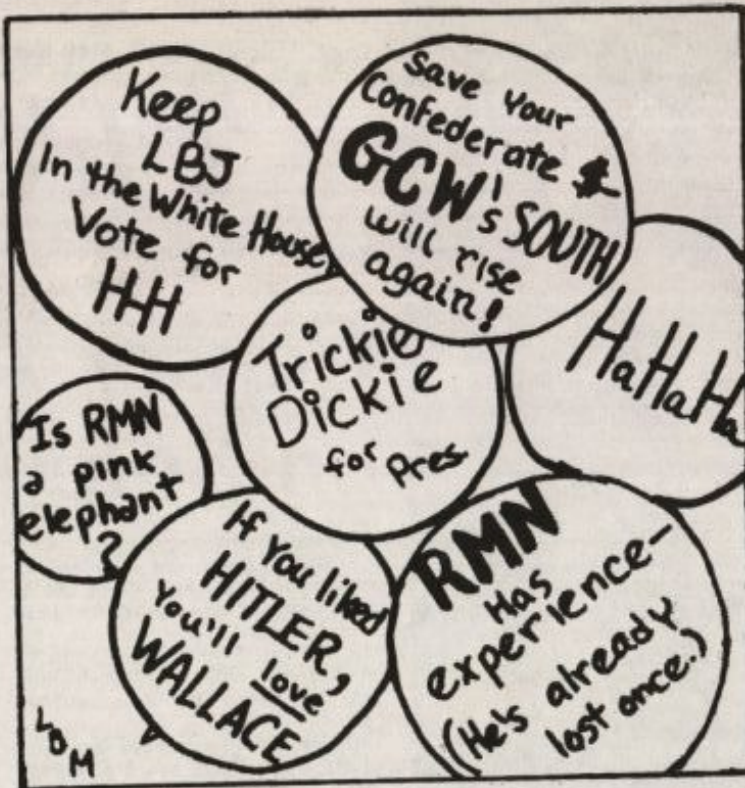 Keep
LBJ
In the White House,
Vote for
HHH
Save Your
Confederate $
GCW's SOUTH
will rise
again!
HaHaHa
Trickie
Dickie
for Pres
Is RMN
a pink
elephant
?
If You liked
HITLER,
You'll love
WALLACE
RMN
Has
experience—
(He's already
lost once.)
LOM